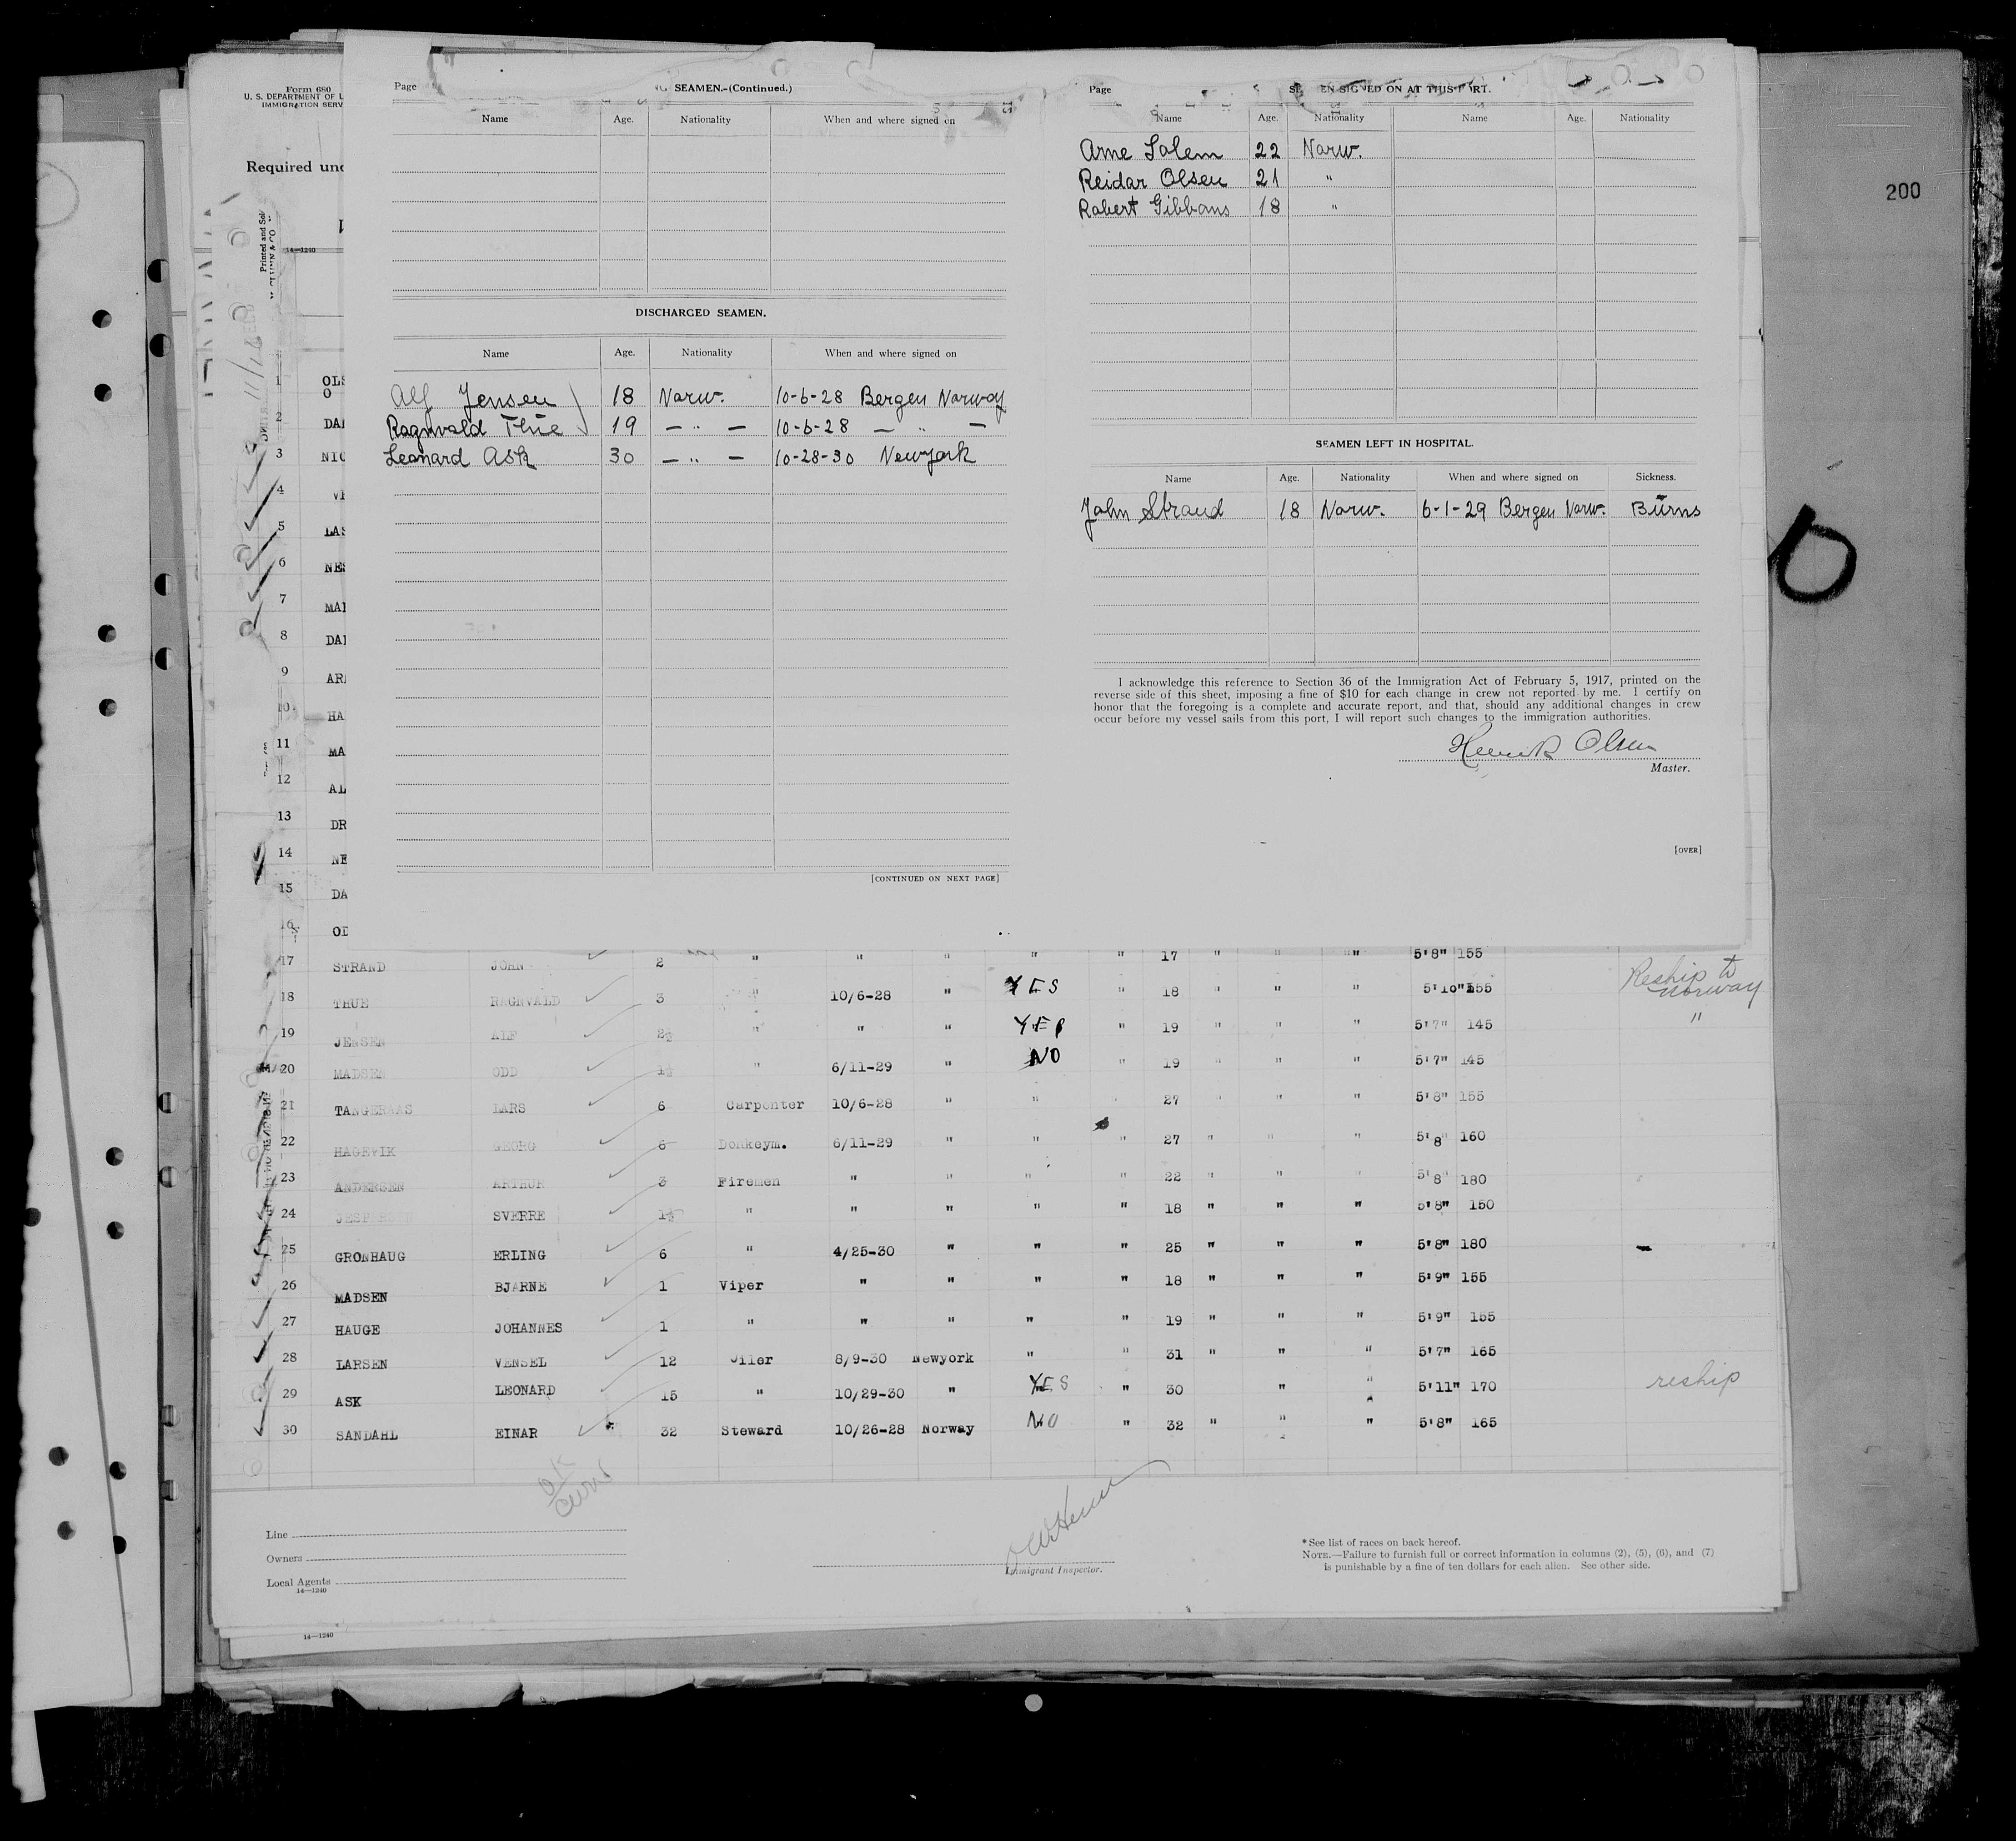 Form 680
U. S. DEPARTMENT OF L
IMMIGRATION SERV
Required und
14—1240
Printed and Sol
200
Page
SEAMEN.-(Continued.)
Name Age. Nationality When and where signed on
DISCHARGED SEAMEN.
Name Age. Nationality When and where signed on
Alf Jensen 18 Norw. 10-6-28 Bergen Norway
Ragnvald Thue 19 — " — 10-6-28 — " —
Leonard Ask 30 — " — 10-28-30 Newyork
[CONTINUED ON NEXT PAGE]
Page
SIGNED ON AT THIS PORT.
Name Age. Nationality Name Age. Nationality
Arne Solem 22 Norw.
Reidar Olsen 21 "
Robert Gibbons 18 "
SEAMEN LEFT IN HOSPITAL.
Name Age. Nationality When and where signed on Sickness.
John Strand 18 Norw. 6-1-29 Bergen Norw. Burns
I acknowledge this reference to Section 36 of the Immigration Act of February 5, 1917, printed on the
reverse side of this sheet, imposing a fine of $10 for each change in crew not reported by me. I certify on
honor that the foregoing is a complete and accurate report, and that, should any additional changes in crew
occur before my vessel sails from this port, I will report such changes to the immigration authorities.
Henrik Olsen
Master.
[OVER]
1 OLS
O
2 DAI
3 NIC
4 VI
5 LAS
6 NES
7 MAI
8 DAI
9 ARI
10 HA
11 MA
12 AL
13 DR
14 NE
15 DA
16 OD
17 STRAND JOHN 2 " " " " " 17 " " " 5'8" 155
18 THUE RAGNVALD 3 " 10/6-28 " YES " 18 " " " 5'10" 155 Reship to Norway
19 JENSEN ALF 2½ " " " YES " 19 " " " 5'7" 145 "
20 MADSEN ODD 1½ " 6/11-29 " NO " 19 " " 5'7" 145
21 TANGERAAS LARS 6 Carpenter 10/6-28 " " " 27 " " " 5'8" 155
22 HAGEVIK GEORG 6 Donkeym. 6/11-29 " " " 27 " " " 5'8" 160
23 ANDERSEN ARTHUR 3 Firemen " " " " 22 " " " 5'8" 180
24 SVERRE 1½ " " " " " 18 " " " 5'8" 150
25 GRONHAUG ERLING 6 " 4/25-30 " " " 25 " " " 5'8" 180
26 MADSEN BJARNE 1 Viper " " " " 18 " " " 5'9" 155
27 HAUGE JOHANNES 1 " " " " " 19 " " " 5'9" 155
28 LARSEN VENSEL 12 Oiler 8/9-30 Newyork " " 31 " " " 5'7" 165
29 ASK LEONARD 15 " 10/29-30 " YES " 30 " " 5'11" 170 reship
30 SANDAHL EINAR 32 Steward 10/26-28 Norway NO " 32 " " " 5'8" 165
Line
Owners
Local Agents
14—1240
Immigrant Inspector.
* See list of races on back hereof.
NOTE.—Failure to furnish full or correct information in columns (2), (5), (6), and (7)
is punishable by a fine of ten dollars for each alien. See other side.
14—1240